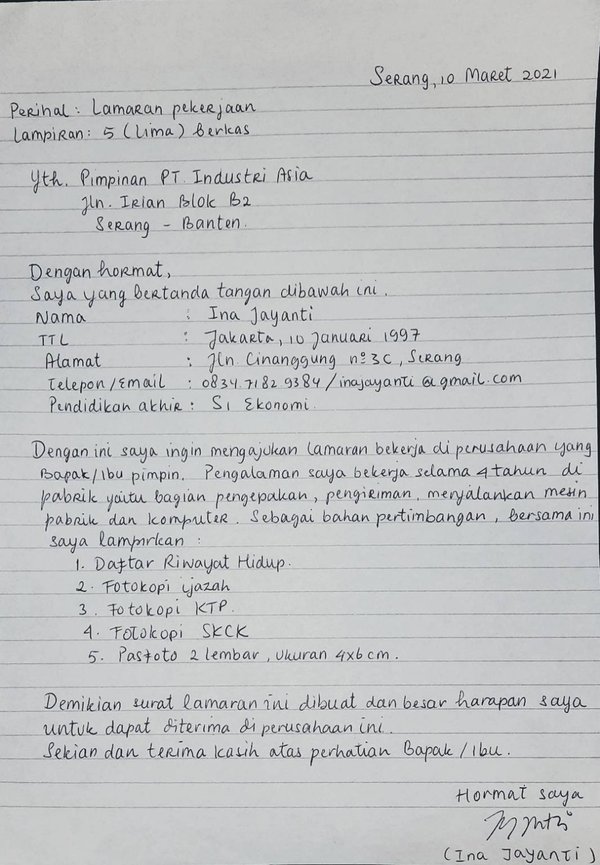 Serang, 10 Maret 2021
Perihal: Lamaran pekerjaan
Lampiran: 5 (Lima) berkas
Yth. Pimpinan PT. Industri Asia
Jln. Irian Blok B2
Serang - Banten.
Dengan hormat,
Saya yang bertanda tangan dibawah ini.
Nama : Ina Jayanti
TTL : Jakarta, 10 Januari 1997
Alamat : Jln Cinanggung no 3C, Serang
Telepon/Email : 0834 7182 9384 / inajayanti@gmail.com
Pendidikan akhir : S1 Ekonomi.
Dengan ini saya ingin mengajukan lamaran bekerja di perusahaan yang
Bapak/Ibu pimpin. Pengalaman saya bekerja selama 4 tahun di
pabrik yaitu bagian pengepakan, pengiriman, menjalankan mesin
pabrik dan komputer. Sebagai bahan pertimbangan, bersama ini
saya lampirkan :
1. Daftar Riwayat Hidup.
2. Fotokopi ijazah
3. Fotokopi KTP.
4. Fotokopi SKCK
5. Pasfoto 2 lembar, ukuran 4x6 cm.
Demikian surat lamaran ini dibuat dan besar harapan saya
untuk dapat diterima di perusahaan ini.
Sekian dan terima kasih atas perhatian Bapak/Ibu.
Hormat saya
(Ina Jayanti)